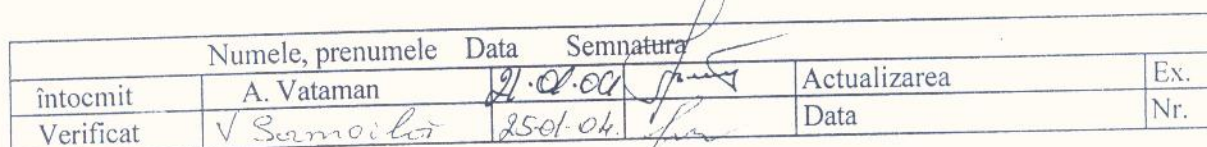 Numele, prenumele Data Semnatura
întocmit A. Vataman 21.01.04 Actualizarea Ex.
Verificat V Samoilov 25-01-04. Data Nr.